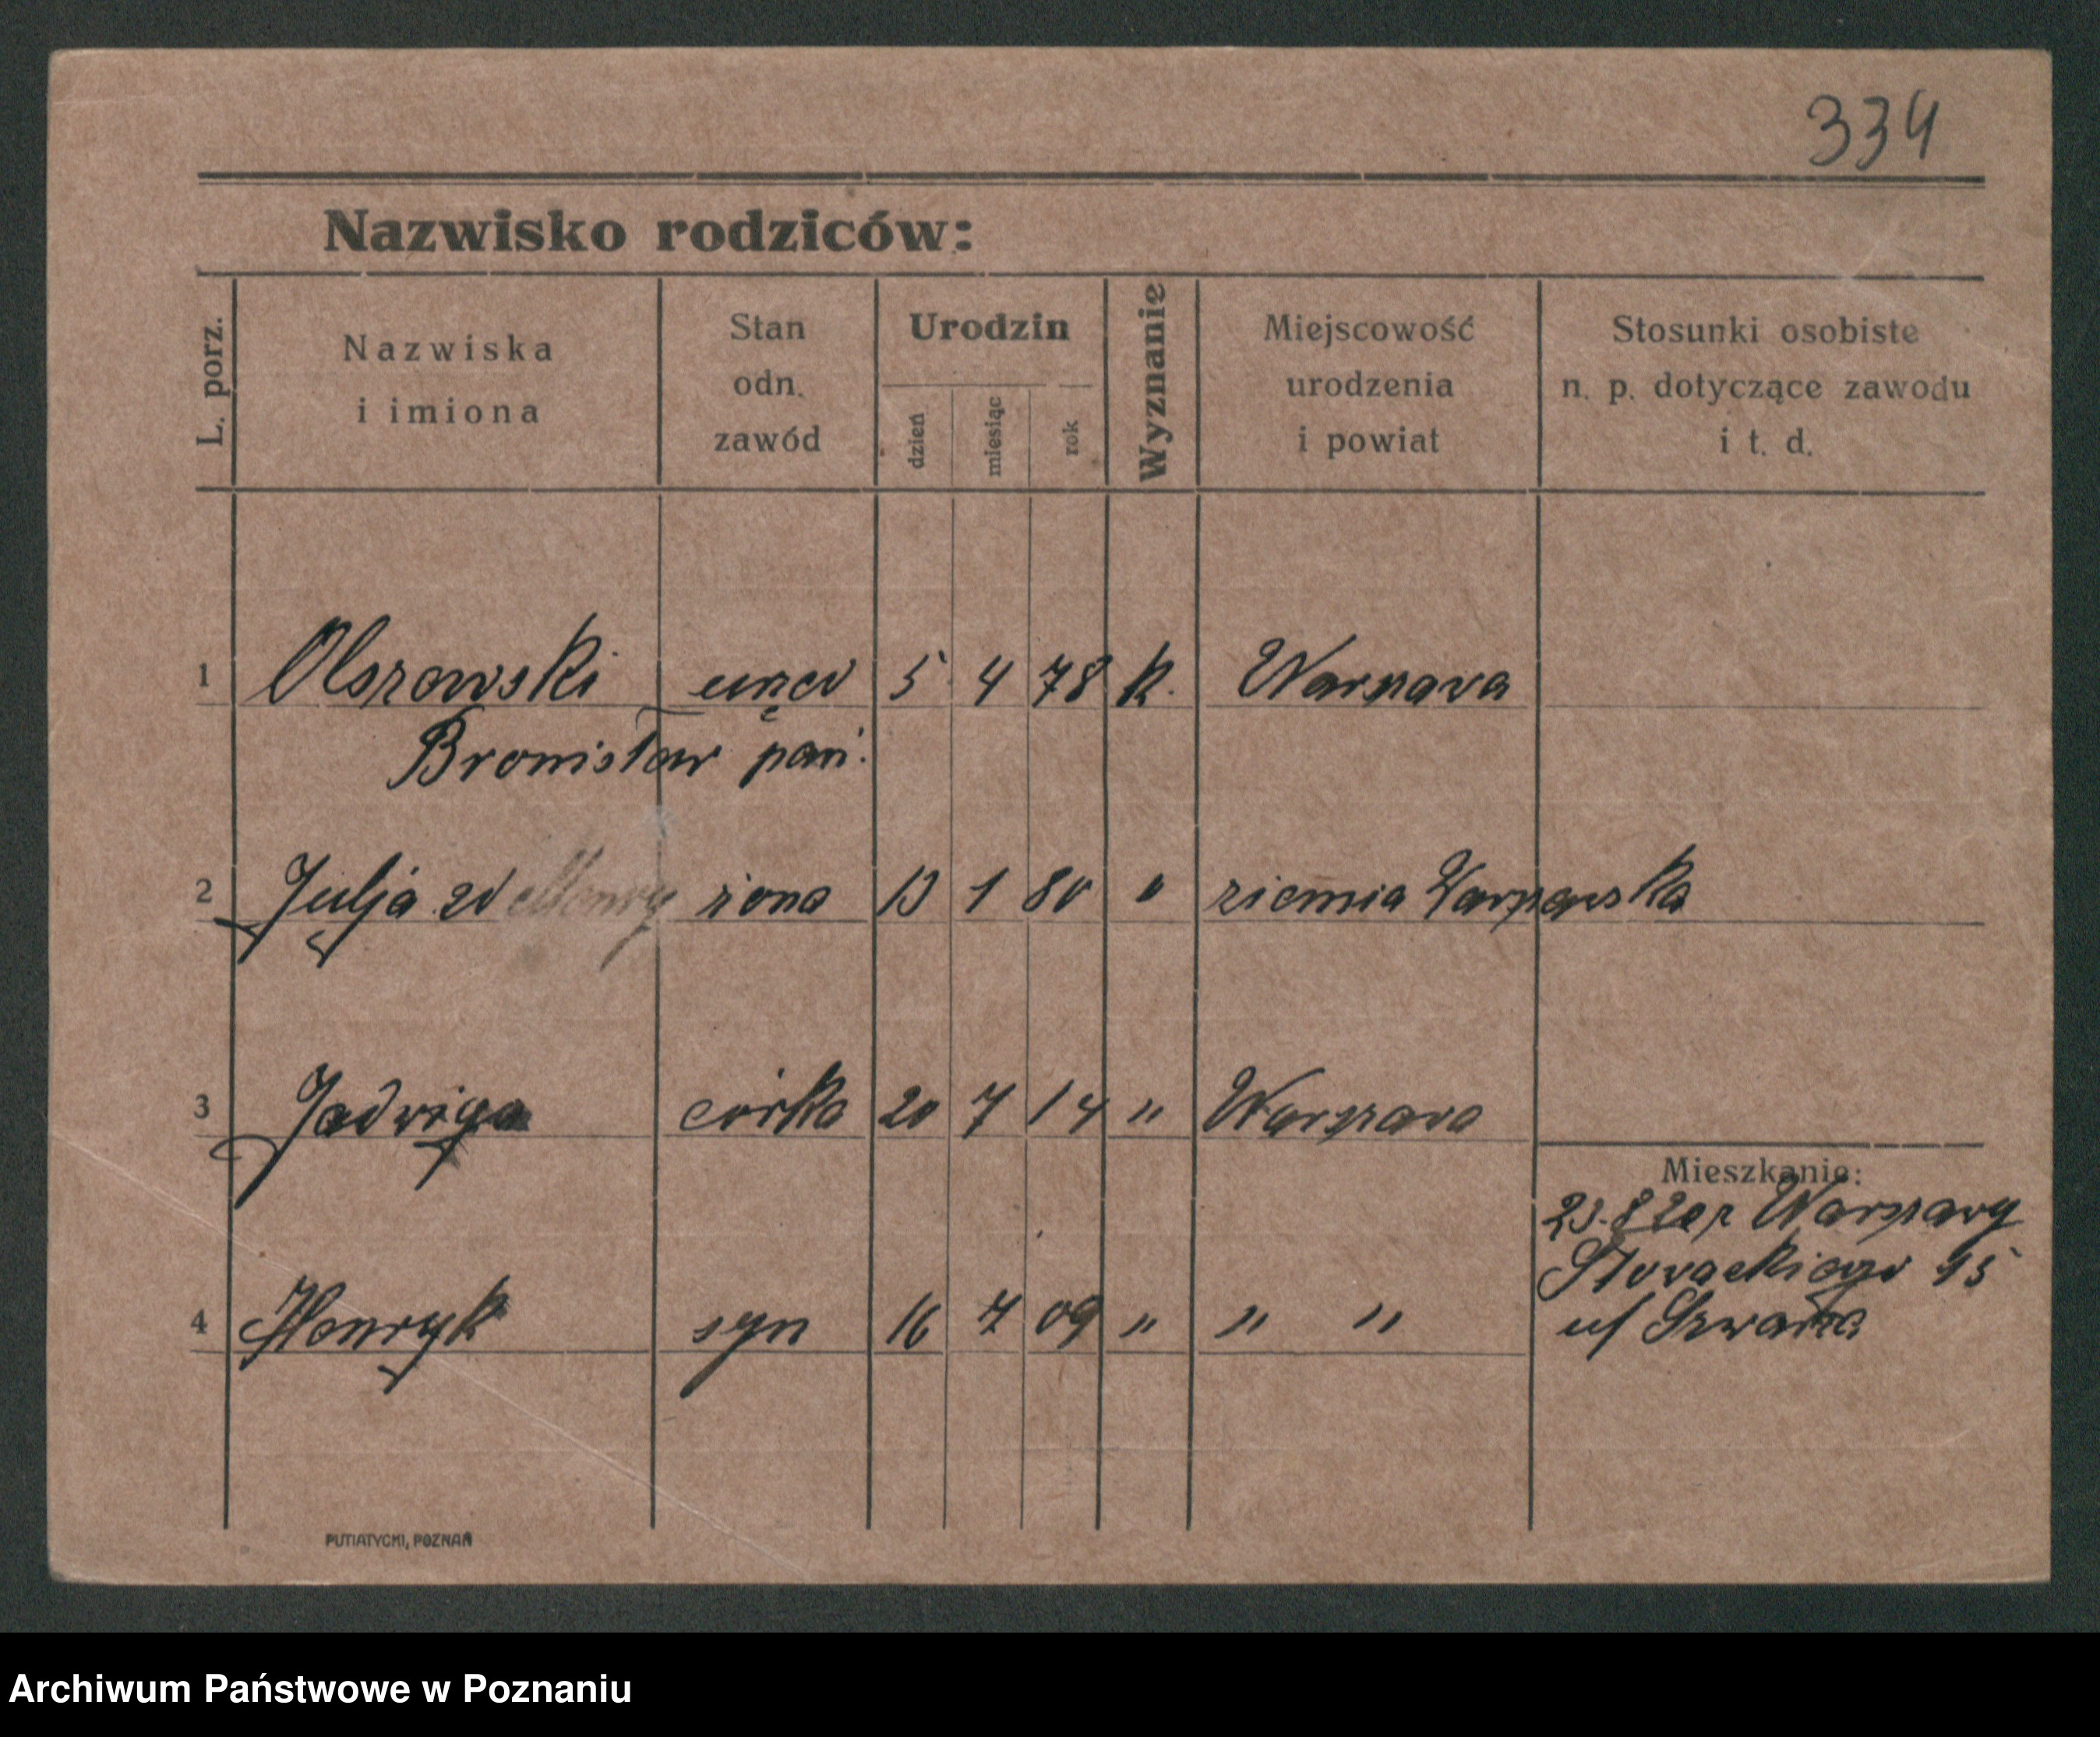 334
Nazwisko rodziców:
L. porz.
Nazwiska
i imiona
Stan
odn.
zawód
Urodzin
dzień
miesiąc
rok
Wyznanie
Miejscowość
urodzenia
i powiat
Stosunki osobiste
n. p. dotyczące zawodu
i t. d.
1 Olszowski 5 4 78 k. Warszawa
Bronisław
2 Julja żona 13 1 80 " ziemia Warszawska
3 Jadwiga córka 20 7 14 " Warszawa
Mieszkanie:
23.8 20 z Warszawy
Słowackiego
4 Henryk syn 16 7 09 " " "
PUTIATYCKI, POZNAŃ
Archiwum Państwowe w Poznaniu